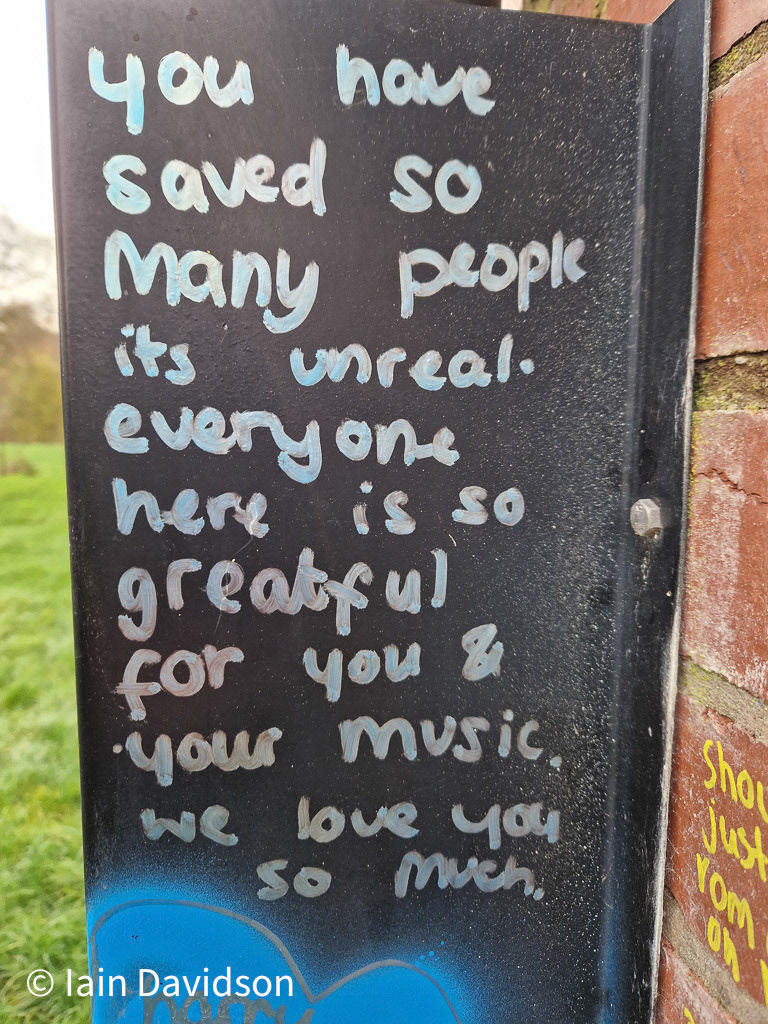 you have
saved so
Many people
its unreal.
everyone
here is so
greatful
for you &
your music.
we love you
so much.
harry
shou
just
rom
on
© Iain Davidson